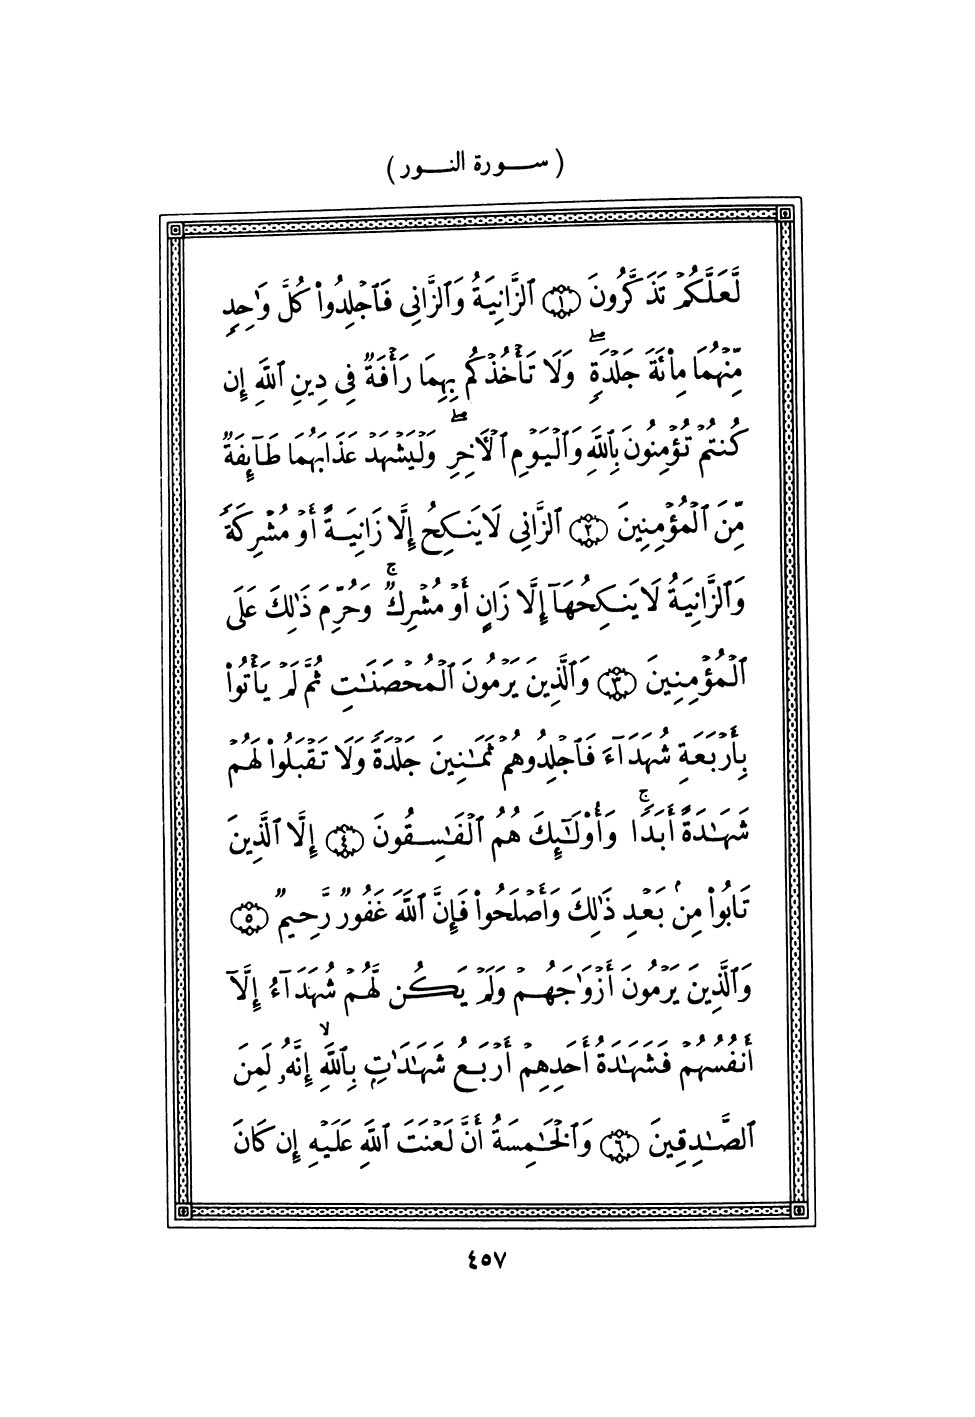 ( ســورة النــور )
لَّعَلَّكُمْ تَذَكَّرُونَ ﴿١﴾ ٱلزَّانِيَةُ وَٱلزَّانِى فَٱجْلِدُوا۟ كُلَّ وَٰحِدٍ
مِّنْهُمَا مِا۟ئَةَ جَلْدَةٍ ۖ وَلَا تَأْخُذْكُم بِهِمَا رَأْفَةٌ فِى دِينِ ٱللَّهِ إِن
كُنتُمْ تُؤْمِنُونَ بِٱللَّهِ وَٱلْيَوْمِ ٱلْـَٔاخِرِ ۖ وَلْيَشْهَدْ عَذَابَهُمَا طَآئِفَةٌ
مِّنَ ٱلْمُؤْمِنِينَ ﴿٢﴾ ٱلزَّانِى لَا يَنكِحُ إِلَّا زَانِيَةً أَوْ مُشْرِكَةً
وَٱلزَّانِيَةُ لَا يَنكِحُهَآ إِلَّا زَانٍ أَوْ مُشْرِكٌ ۚ وَحُرِّمَ ذَٰلِكَ عَلَى
ٱلْمُؤْمِنِينَ ﴿٣﴾ وَٱلَّذِينَ يَرْمُونَ ٱلْمُحْصَنَٰتِ ثُمَّ لَمْ يَأْتُوا۟
بِأَرْبَعَةِ شُهَدَآءَ فَٱجْلِدُوهُمْ ثَمَٰنِينَ جَلْدَةً وَلَا تَقْبَلُوا۟ لَهُمْ
شَهَٰدَةً أَبَدًا ۚ وَأُو۟لَٰٓئِكَ هُمُ ٱلْفَٰسِقُونَ ﴿٤﴾ إِلَّا ٱلَّذِينَ
تَابُوا۟ مِنۢ بَعْدِ ذَٰلِكَ وَأَصْلَحُوا۟ فَإِنَّ ٱللَّهَ غَفُورٌ رَّحِيمٌ ﴿٥﴾
وَٱلَّذِينَ يَرْمُونَ أَزْوَٰجَهُمْ وَلَمْ يَكُن لَّهُمْ شُهَدَآءُ إِلَّآ
أَنفُسُهُمْ فَشَهَٰدَةُ أَحَدِهِمْ أَرْبَعُ شَهَٰدَٰتٍۭ بِٱللَّهِ ۙ إِنَّهُۥ لَمِنَ
ٱلصَّٰدِقِينَ ﴿٦﴾ وَٱلْخَٰمِسَةُ أَنَّ لَعْنَتَ ٱللَّهِ عَلَيْهِ إِن كَانَ
٤٥٧